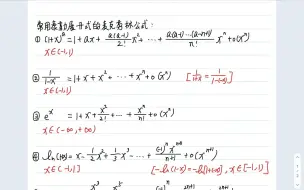 常用泰勒展开式的麦克劳林公式:
① (1+x)^a = 1+ax+ a(a-1)/2! x²+ ⋯ + a(a-1)⋯(a-n+1)/n! x^n+o(x^n)
x∈(-1,1)
② 1/(1-x) = 1+x+x²+ ⋯ +x^n+o(x^n) [1/(1+x) = 1/(1-(-x))]
x∈(-1,1)
③ e^x = 1+x+ x²/2! + ⋯ + x^n/n! +o(x^n)
x∈(-∞,+∞)
④ ln(1+x) = x- 1/2 x²+ 1/3 x³ - ⋯ + (-1)^n x^(n+1)/(n+1) +o(x^(n+1))
x∈(-1,1] [-ln(1-x)=-ln[1+(-x)], x∈[-1,1)]